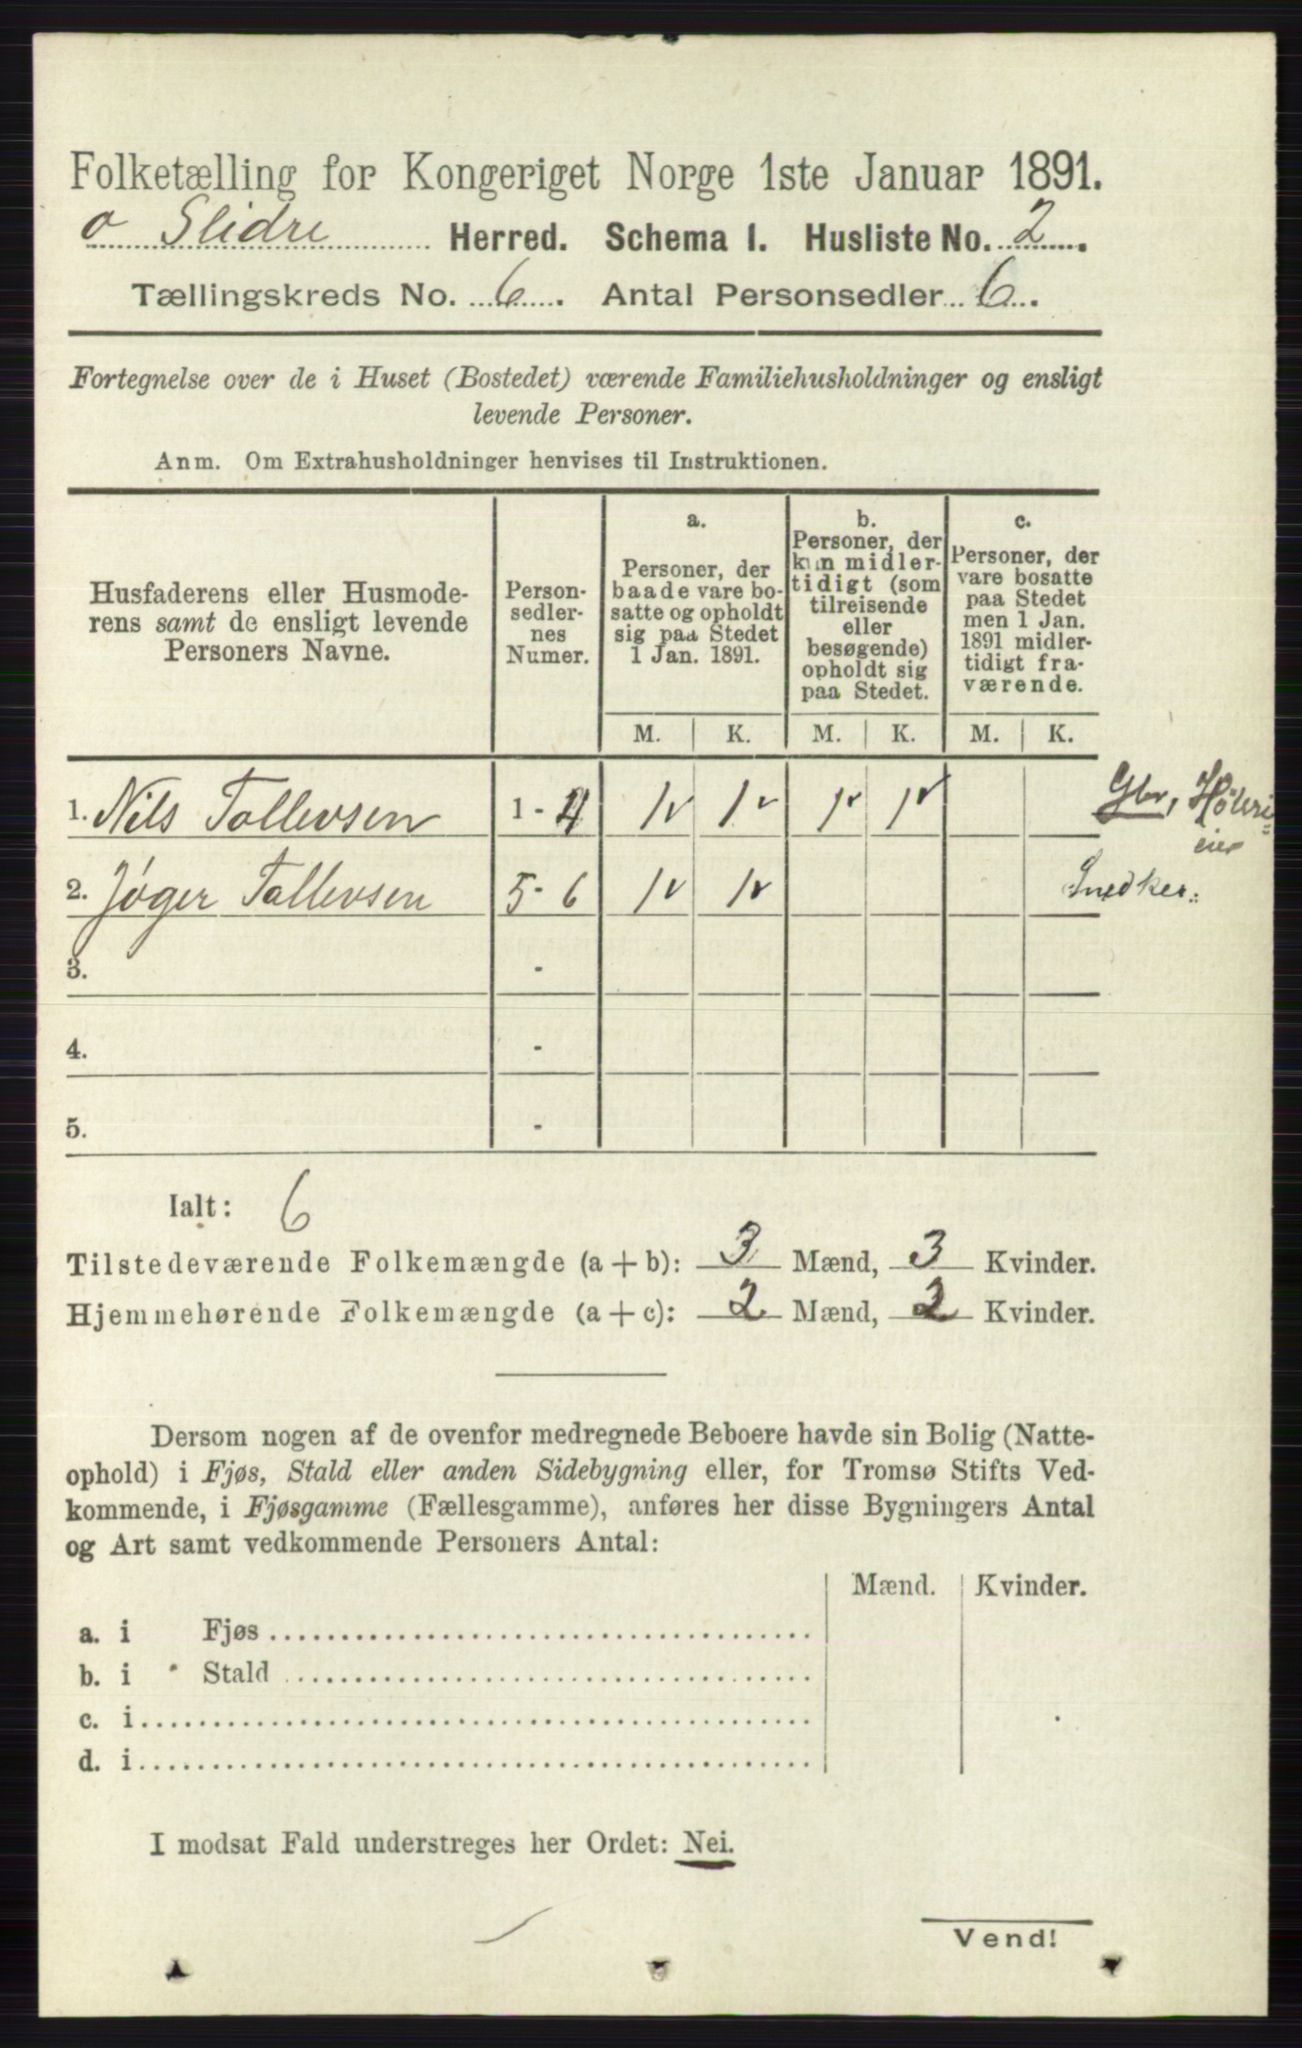 Folketælling for Kongeriget Norge 1ste Januar 1891.
O Slidre Herred. Schema I. Husliste No. 2.
Tællingskreds No. 6. Antal Personsedler 6.
Fortegnelse over de i Huset (Bostedet) værende Familiehusholdninger og ensligt
levende Personer.
Anm. Om Extrahusholdninger henvises til Instruktionen.
Husfaderens eller Husmode-
rens samt de ensligt levende
Personers Navne.
Person-
sedler-
nes
Numer.
a.
Personer, der
baade vare bo-
satte og opholdt
sig paa Stedet
1 Jan. 1891.
b.
Personer, der
kun midler-
tidigt (som
tilreisende
eller
besøgende)
opholdt sig
paa Stedet.
c.
Personer, der
vare bosatte
paa Stedet
men 1 Jan.
1891 midler-
tidigt fra-
værende.
M. K. M. K. M. K.
1. Nils Tollevsen 1 - 4 1 1 1 1 Gbr,
2. Jøger Tollevsen 5 - 6 1 1 Snedker.
3. -
4. -
5. -
Ialt: 6
Tilstedeværende Folkemængde (a + b): 3 Mænd, 3 Kvinder.
Hjemmehørende Folkemængde (a + c): 2 Mænd, 2 Kvinder.
Dersom nogen af de ovenfor medregnede Beboere havde sin Bolig (Natte-
ophold) i Fjøs, Stald eller anden Sidebygning eller, for Tromsø Stifts Ved-
kommende, i Fjøsgamme (Fællesgamme), anføres her disse Bygningers Antal
og Art samt vedkommende Personers Antal:
Mænd. Kvinder.
a. i Fjøs
b. i Stald
c. i
d. i
I modsat Fald understreges her Ordet: Nei.
Vend!